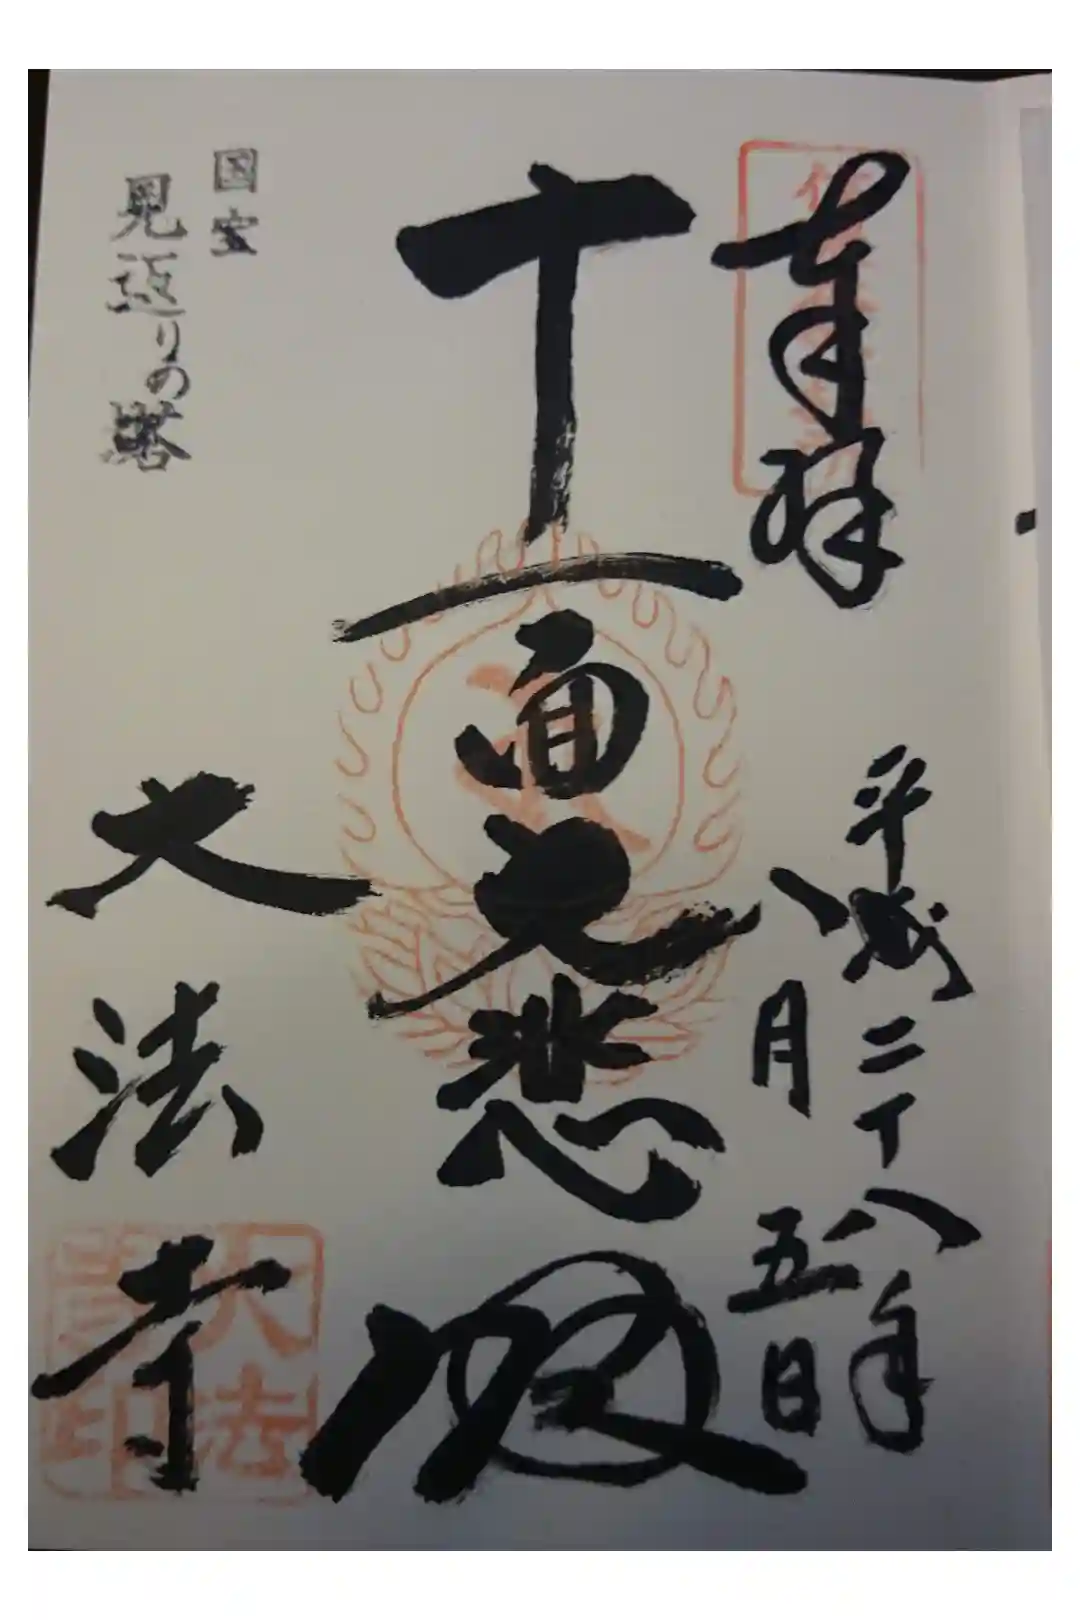 奉拝
平成二十八年
八月五日
十一面大悲殿
大法寺
国宝
見返りの塔
大法
寺印